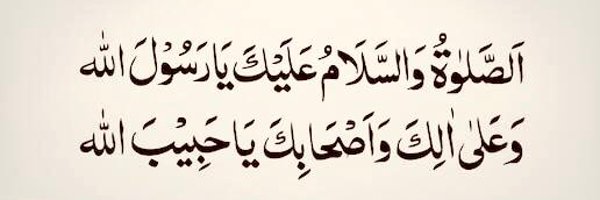 اَلصَّلٰوةُ وَالسَّلَامُ عَلَيْكَ يَا رَسُوْلَ الله
وَعَلٰى اٰلِكَ وَاَصْحَابِكَ يَا حَبِيْبَ الله